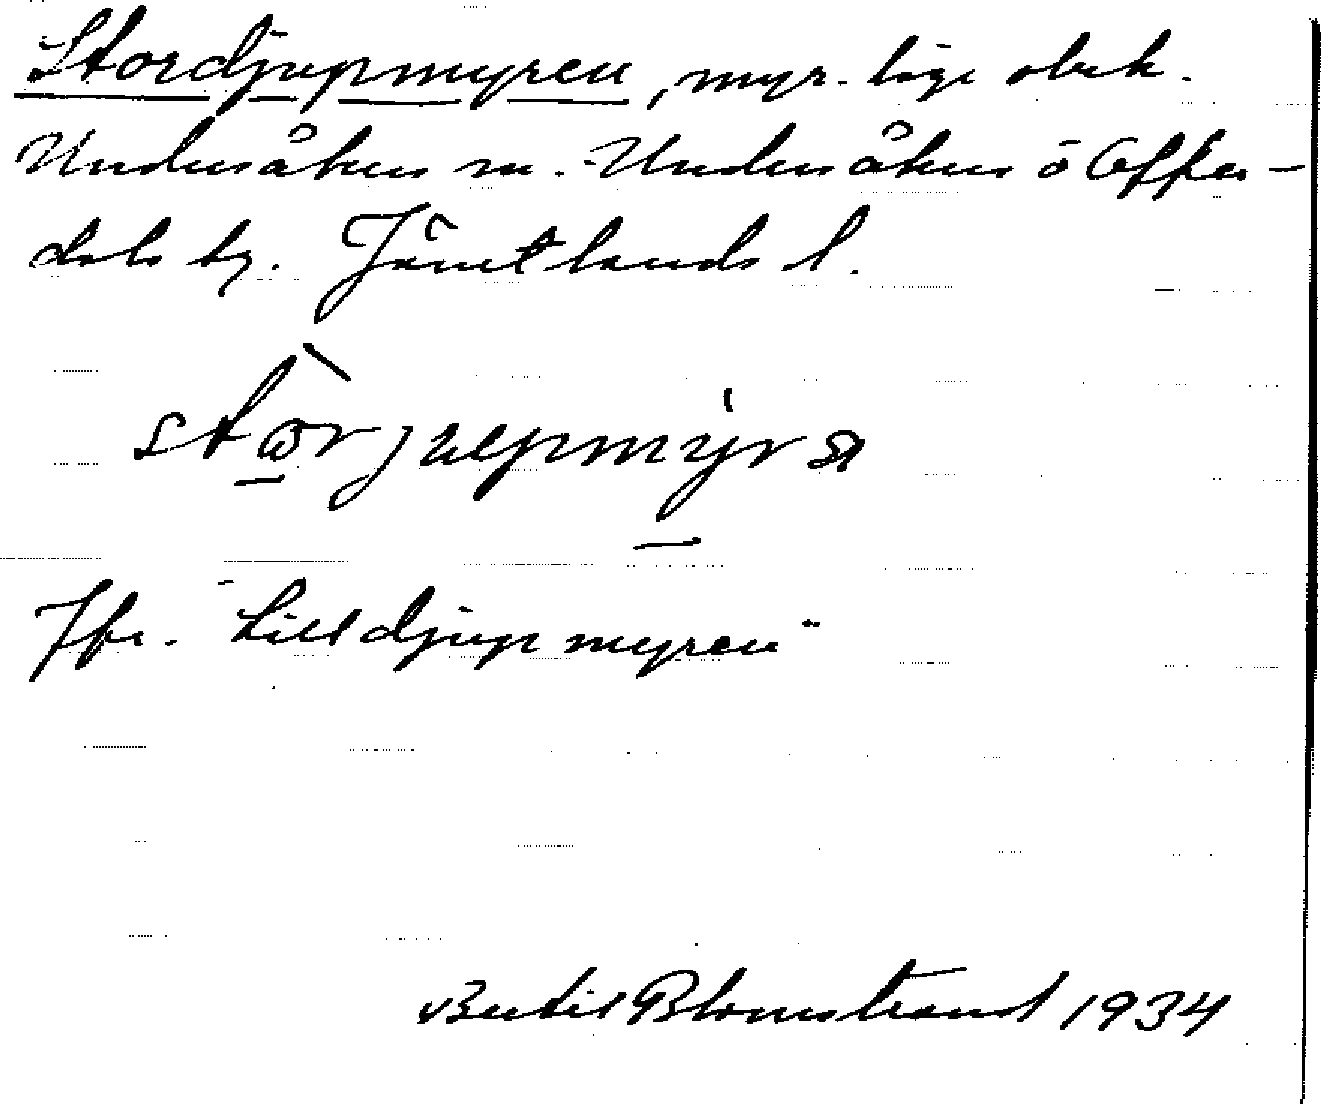 Stordjupmyren, myr. läge obek.
Undersåkers sn. Undersåkers o Offer-
dals tg. Jämtlands l.
Jfr. "Lilldjupmyren"
Bertil Blomstrand 1934